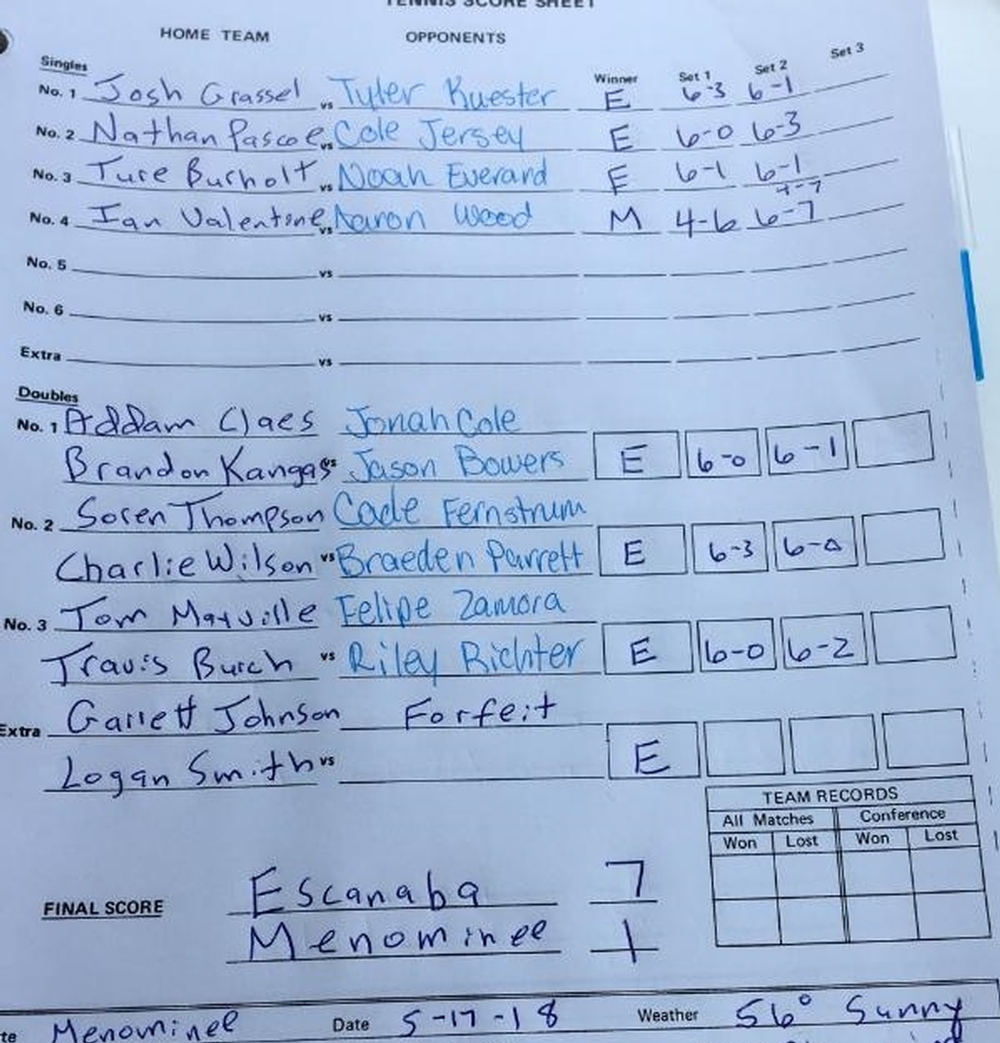 TENNIS SCORE SHEET
HOME TEAM OPPONENTS
Singles Winner Set 1 Set 2 Set 3
No. 1 Josh Grassel vs Tyler Kuester E 6-3 6-1
No. 2 Nathan Pascoe vs Cole Jersey E 6-0 6-3
No. 3 Ture Burholt vs Noah Everard E 6-1 6-1
4-7
No. 4 Ian Valentine vs Aaron Wood M 4-6 6-7
No. 5 vs
No. 6 vs
Extra vs
Doubles
No. 1 Addam Claes Jonah Cole
Brandon Kangas vs Jason Bowers E 6-0 6-1
No. 2 Soren Thompson Cade Fernstrum
Charlie Wilson vs Braeden Parrett E 6-3 6-0
No. 3 Tom Mayville Felipe Zamora
Travis Burch vs Riley Richter E 6-0 6-2
Extra Garrett Johnson Forfeit
Logan Smith vs E
TEAM RECORDS
All Matches Conference
Won Lost Won Lost
FINAL SCORE Escanaba 7
Menominee 1
te Menominee Date 5-17-18 Weather 56° Sunny